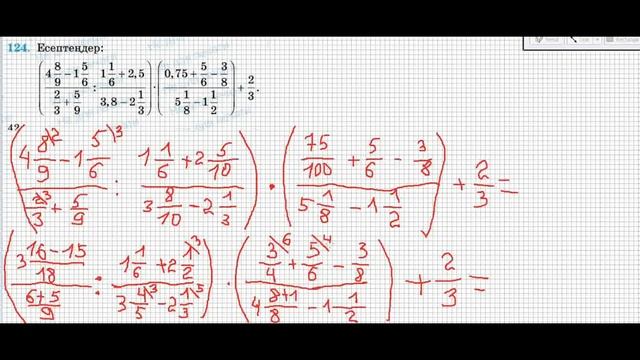 124. Есептеңдер:
(4 8/9 − 1 5/6 / 2/3 + 5/9 : 1 1/6 + 2,5 / 3,8 − 2 1/3) · (0,75 + 5/6 − 3/8 / 5 1/8 − 1 1/2) + 2/3.
(4 8\2/9 − 1 5\3/6 / 2\3/3 + 5/9 : 1 1/6 + 2 5/10 / 3 8/10 − 2 1/3) · (75/100 + 5/6 − 3/8 / 5 1/8 − 1 1/2) + 2/3 =
(3 16−15/18 / 6+5/9 : 1 1/6 + 2 1\3/2 / 3 4\3/5 − 2 1\5/3) · (3\6/4 + 5\4/6 − 3/8 / 4 8+1/8 − 1 1/2) + 2/3 =